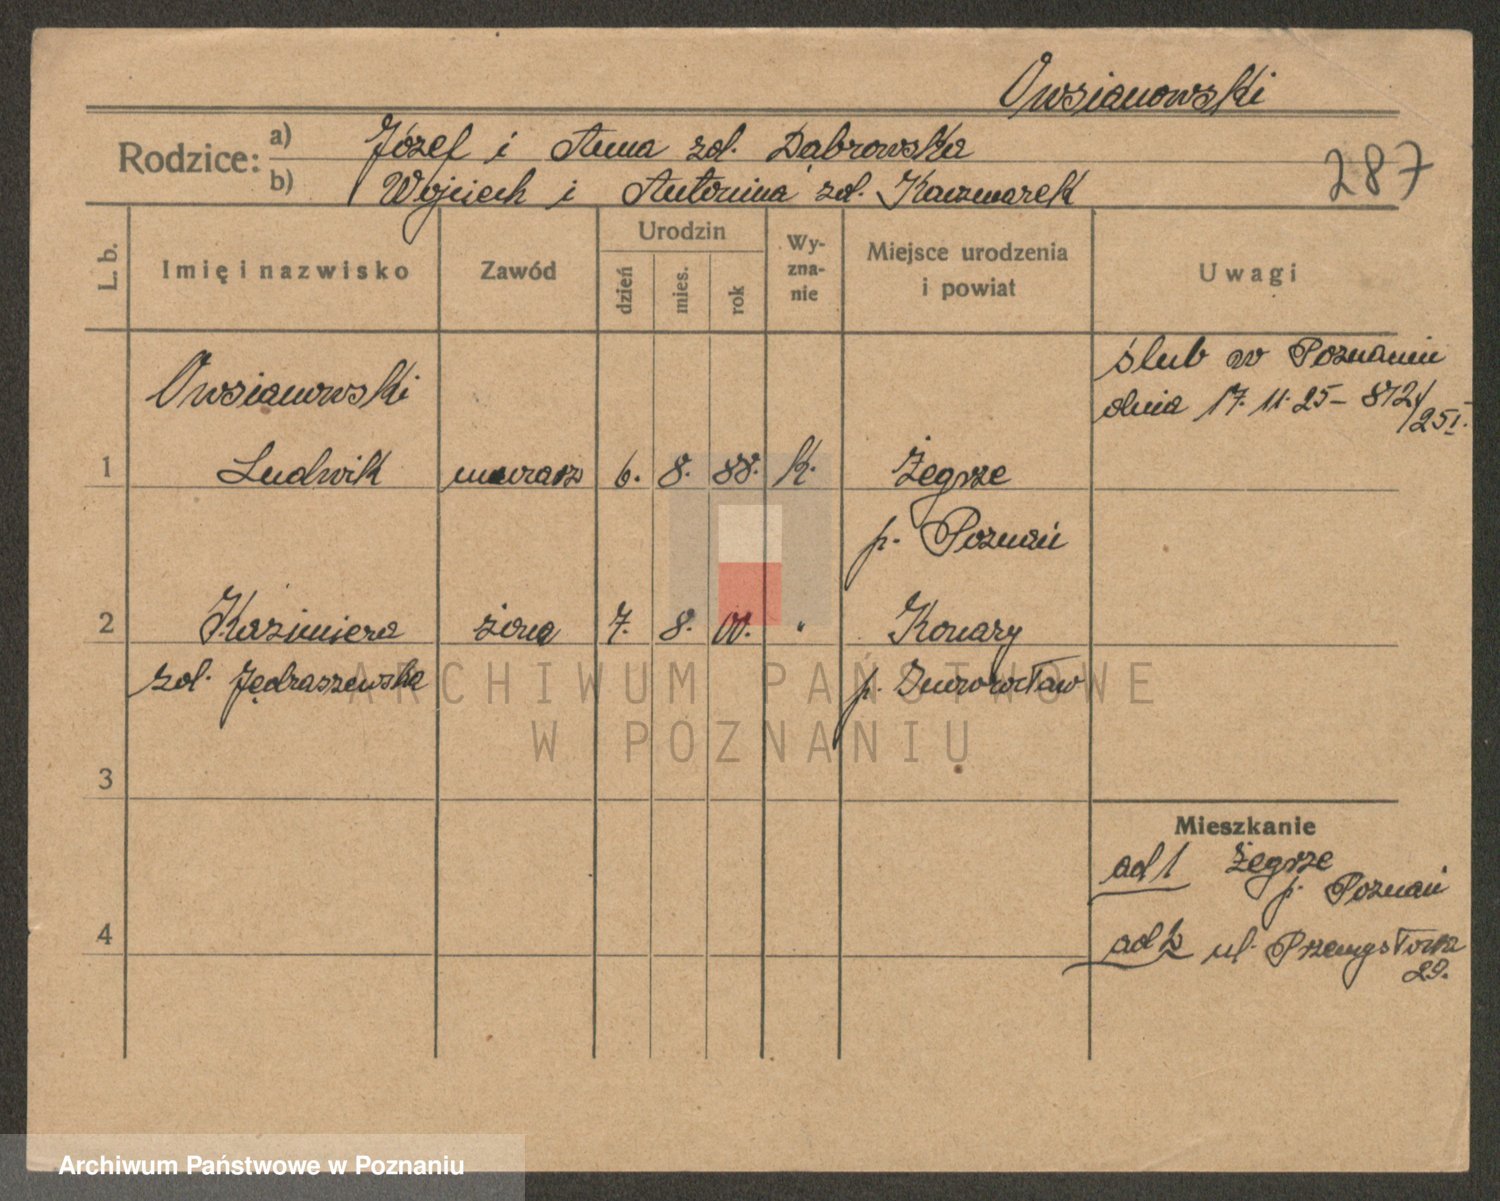 Owsianowski
Rodzice: a) Józef i Anna zd. Dąbrowska
b) Wojciech i Antonina zd. Kaczmarek
287
L. b.
Imię i nazwisko
Zawód
Urodzin
dzień
mies.
rok
Wy-
zna-
nie
Miejsce urodzenia
i powiat
Uwagi
ślub w Poznaniu
dnia 17. 11. 25 – 872/
/25 I.
Owsianowski
1 Ludwik murarz 6. 8. 88. k. Żegrze
p. Poznań
2 Kazimiera żona 7. 8. 00. " Konary
zd. Jędraszewska p. Inowrocław
ARCHIWUM PAŃSTWOWE
W POZNANIU
3
Mieszkanie
ad 1 Żegrze
p. Poznań
4
ad 2 ul. Przemysłowa
29.
Archiwum Państwowe w Poznaniu